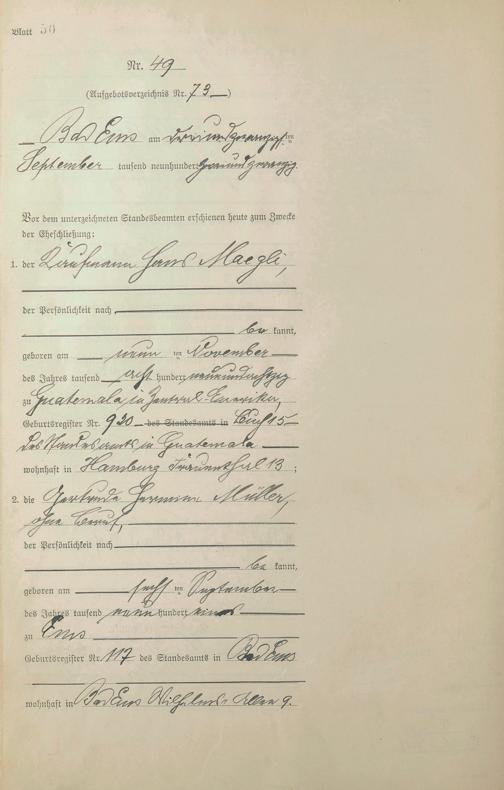 Blatt 50
Nr. 49
(Aufgebotsverzeichnis Nr. 73)
Bad Ems am dreiundzwanzigsten
September tausend neunhundert zweiundzwanzig.
Vor dem unterzeichneten Standesbeamten erschienen heute zum Zwecke
der Eheschließung:
1. der Kaufmann Hans Maegli,
der Persönlichkeit nach
be kannt,
geboren am neun ten November
des Jahres tausend acht hundert neunundachtzig
zu Guatemala, in Zentral-Amerika,
Geburtsregister Nr. 920 des Standesamts in Buch 15
des Standesamts in Guatemala
wohnhaft in Hamburg Frauenthal 13 ;
2. die Gertrude Hermine Müller,
ohne Beruf,
der Persönlichkeit nach
be kannt,
geboren am sechs ten September
des Jahres tausend neun hundert eins
zu Ems
Geburtsregister Nr. 117 des Standesamts in Bad Ems
wohnhaft in Bad Ems Wilhelms-Allee 9.